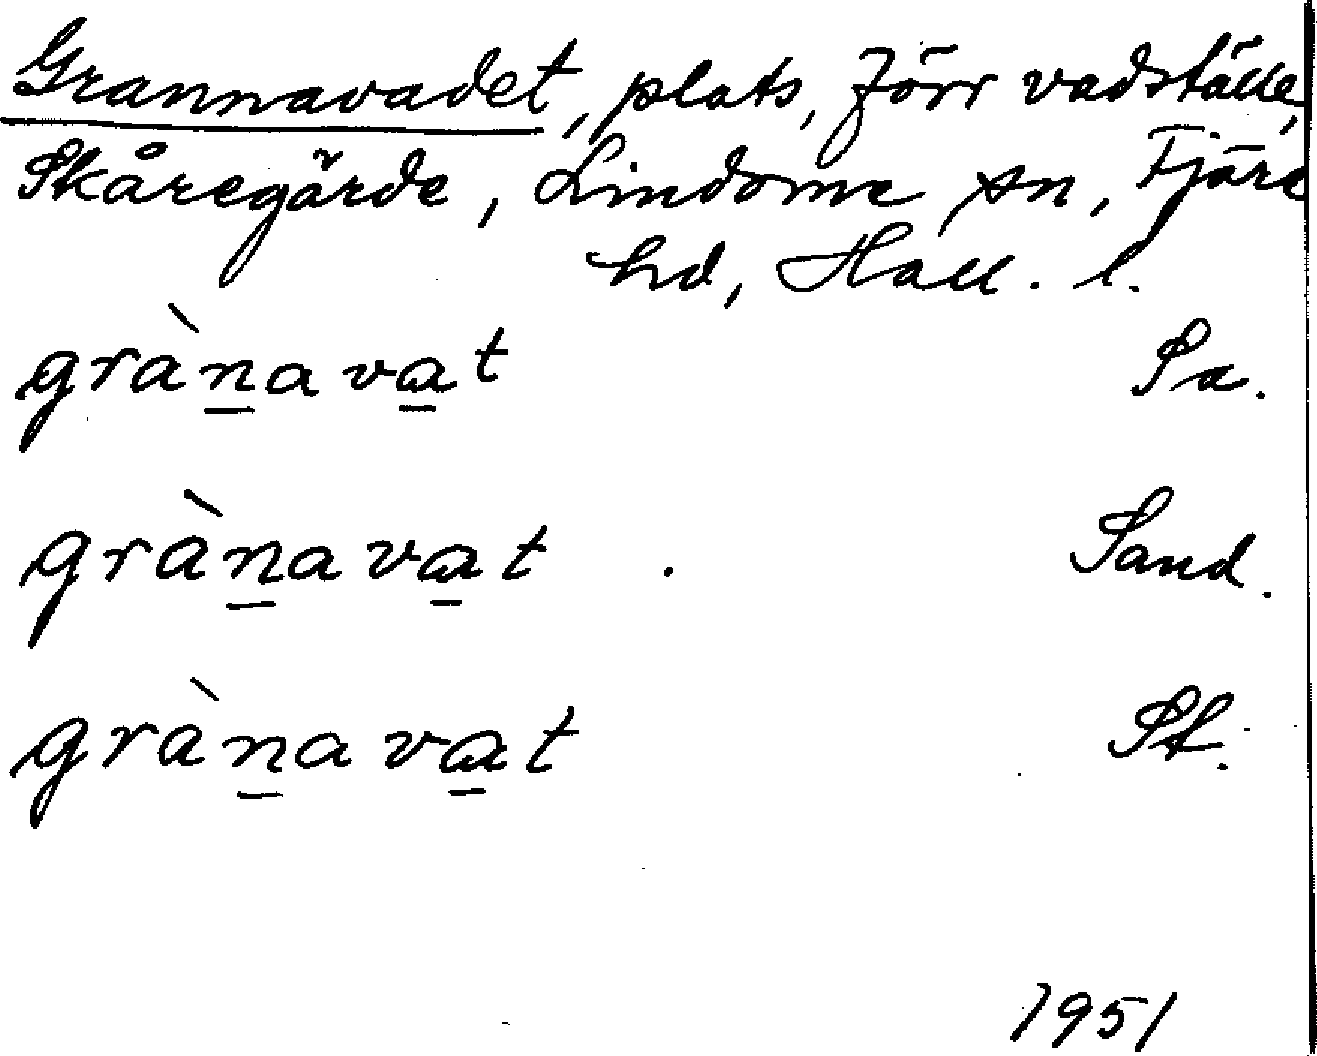 Grannavadet, plats, förr vadställe,
Skåregärde, Lindome sn, Fjäre
hd, Hall. l.
grànavat Sa.
grànavat . Sand.
grànavat St.
1951